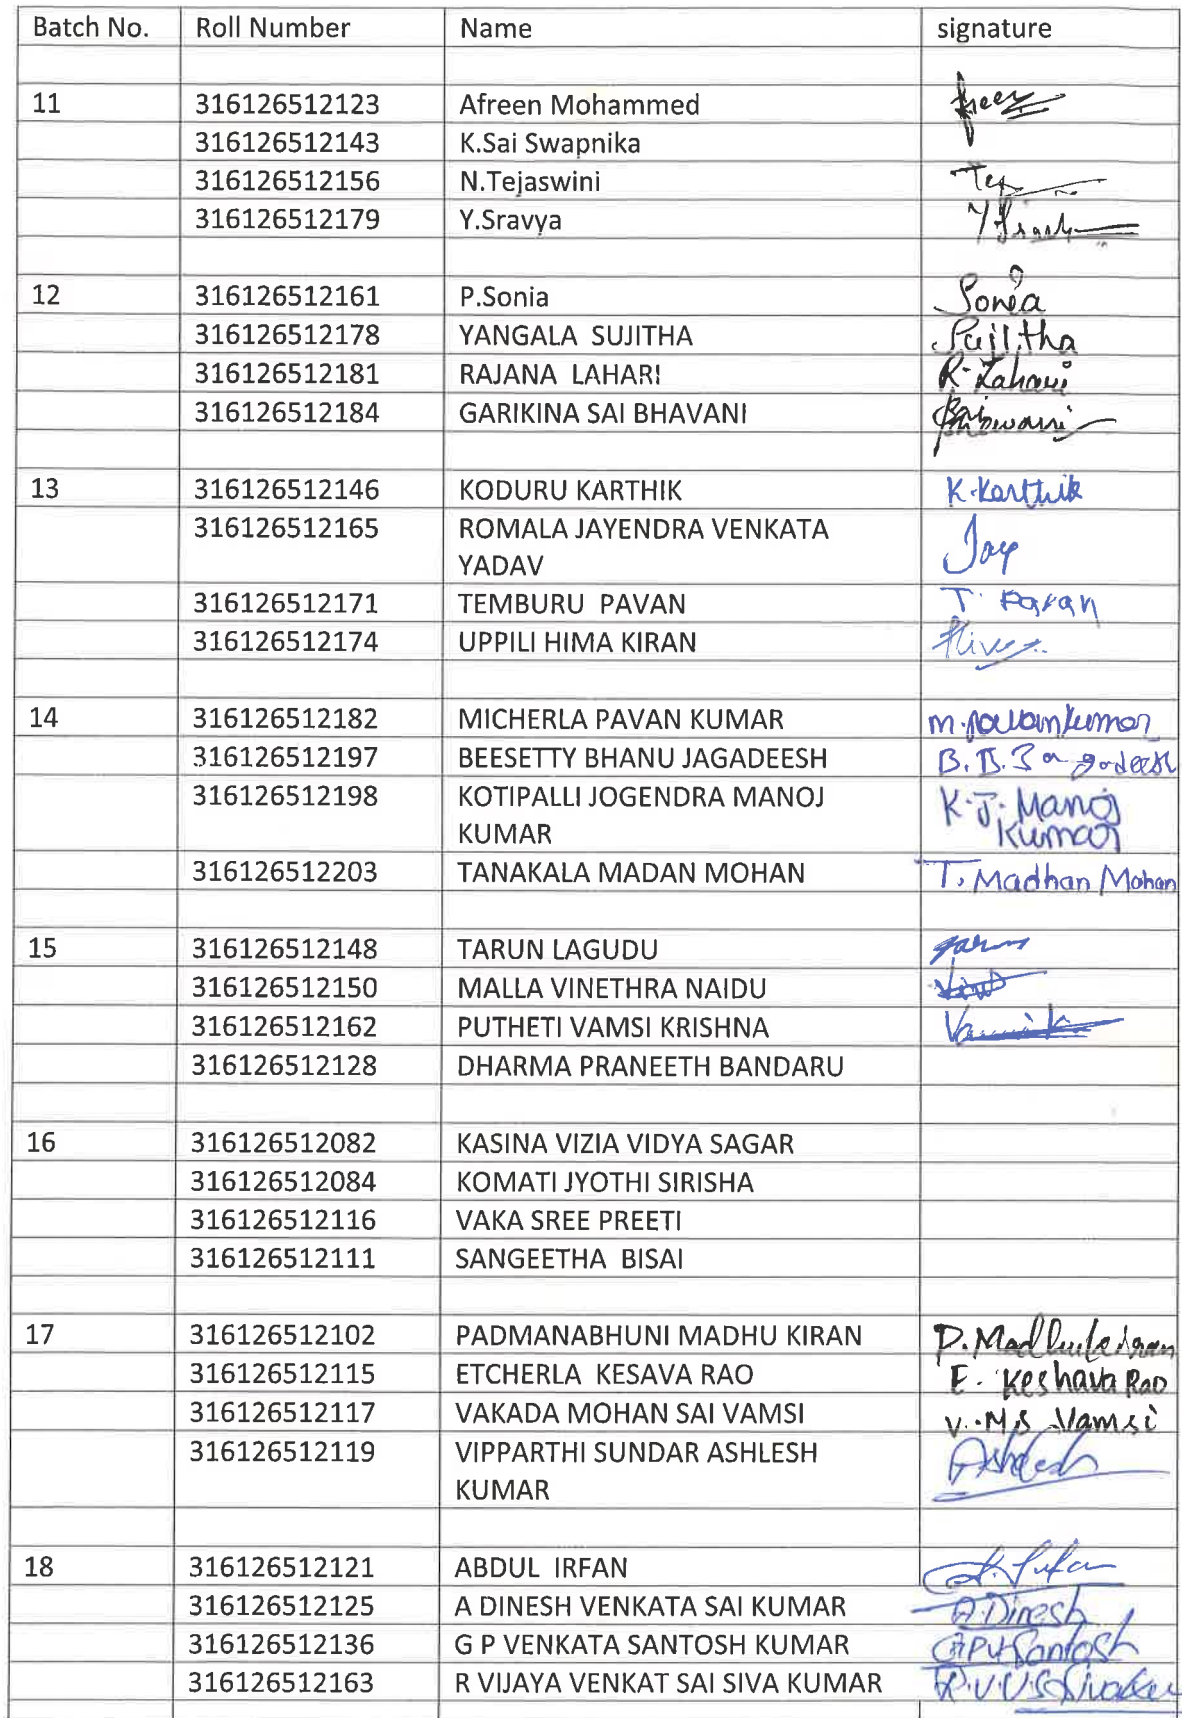 Batch No. Roll Number Name signature
11 316126512123 Afreen Mohammed
316126512143 K.Sai Swapnika
316126512156 N.Tejaswini
316126512179 Y.Sravya
12 316126512161 P.Sonia Sonia
316126512178 YANGALA SUJITHA Sujitha
316126512181 RAJANA LAHARI R. Lahari
316126512184 GARIKINA SAI BHAVANI
13 316126512146 KODURU KARTHIK K.Karthik
316126512165 ROMALA JAYENDRA VENKATA Jay
YADAV
316126512171 TEMBURU PAVAN T. Pavan
316126512174 UPPILI HIMA KIRAN
14 316126512182 MICHERLA PAVAN KUMAR M.pavankumar
316126512197 BEESETTY BHANU JAGADEESH B.B.Jagadeesh
316126512198 KOTIPALLI JOGENDRA MANOJ K.J. Manoj
KUMAR Kumar
316126512203 TANAKALA MADAN MOHAN T. Madhan Mohan
15 316126512148 TARUN LAGUDU
316126512150 MALLA VINETHRA NAIDU
316126512162 PUTHETI VAMSI KRISHNA
316126512128 DHARMA PRANEETH BANDARU
16 316126512082 KASINA VIZIA VIDYA SAGAR
316126512084 KOMATI JYOTHI SIRISHA
316126512116 VAKA SREE PREETI
316126512111 SANGEETHA BISAI
17 316126512102 PADMANABHUNI MADHU KIRAN P.Madhukiran
316126512115 ETCHERLA KESAVA RAO E. Keshava Rao
316126512117 VAKADA MOHAN SAI VAMSI V.M.S Vamsi
316126512119 VIPPARTHI SUNDAR ASHLESH Ashlesh
KUMAR
18 316126512121 ABDUL IRFAN A. Irfan
316126512125 A DINESH VENKATA SAI KUMAR A.Dinesh
316126512136 G P VENKATA SANTOSH KUMAR G.P.V.Santosh
316126512163 R VIJAYA VENKAT SAI SIVA KUMAR